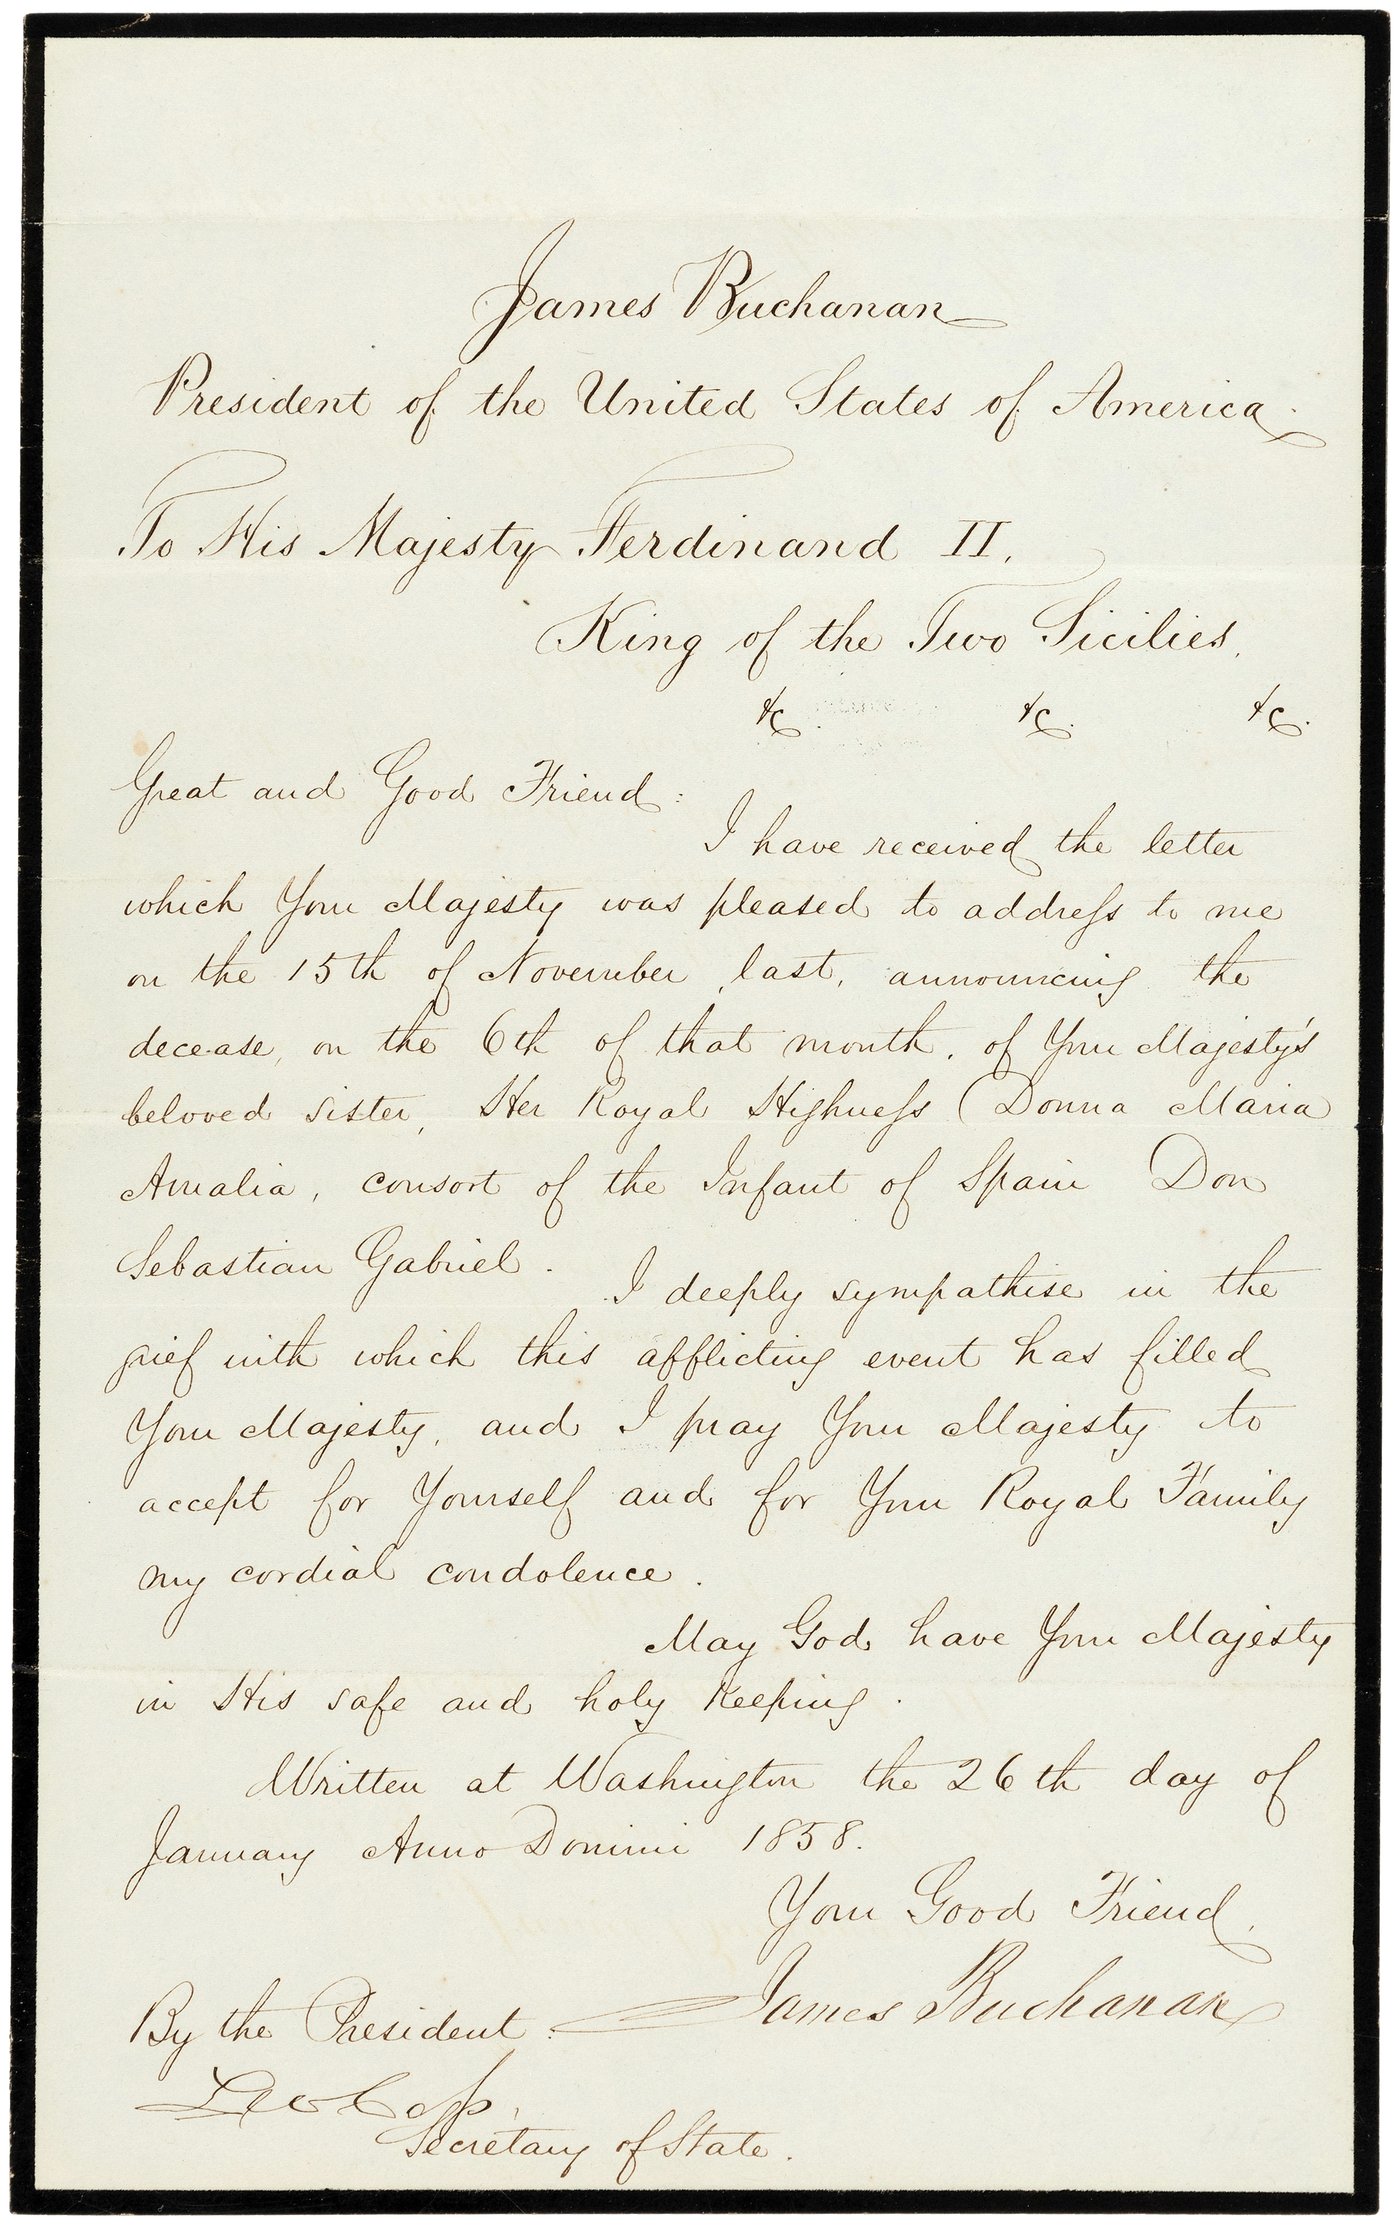 James Buchanan
President of the United States of America.
To His Majesty Ferdinand II.
King of the Two Sicilies.
&c. &c. &c.
Great and Good Friend:
I have received the letter
which Your Majesty was pleased to address to me
on the 15th of November last, announcing the
decease, on the 6th of that month, of Your Majesty's
beloved sister, Her Royal Highness Donna Maria
Amalia, consort of the Infant of Spain Don
Sebastian Gabriel.
I deeply sympathise in the
grief with which this afflicting event has filled
Your Majesty, and I pray Your Majesty to
accept for Yourself and for Your Royal Family
my cordial condolence.
May God have Your Majesty
in His safe and holy keeping.
Written at Washington the 26th day of
January Anno Domini 1858.
Your Good Friend,
James Buchanan
By the President:
Lew Cass,
Secretary of State.